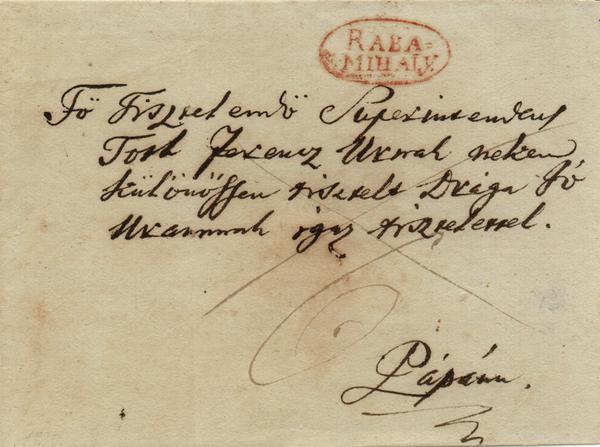 RABA=
MIHALY.
Fö Tisztelendö Superintendens
Toth Ferencz Urnak nekem
különössen tisztelt Drága Fö
Uramnak igaz tisztelettel.
Pápánn.